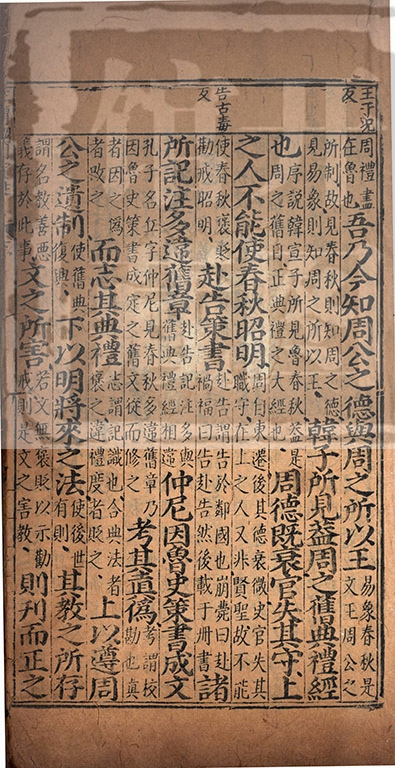 王于況反
告古毒反
周禮盡在魯也吾乃今知周公之德與周之所以王易象春秋是文王周公之
所制故見春秋則知周之德見易象則知周之所以王韓子所見蓋周之舊典禮經
也序說韓宣子所見魯春秋蓋是周之舊日正典禮之大經也周德既衰官失其守上
之人不能使春秋昭明周自東遷後其德衰微史官失其職守在上之人又非賢聖故不能
使春秋褒貶勸戒昭明赴告策書赴告謂告於鄰國也崩薨曰赴禍福曰告赴告然後載于冊書諸
所記注多違舊章赴告記注多與舊典禮經相違仲尼因魯史策書成文
孔子名丘字仲尼見春秋多違舊章乃因魯史策書成定之舊文從而修之考其真偽考謂校勘也真
者因之偽者改之而志其典禮志謂記識也合典法者褒之違禮度者貶之上以遵周
公之遺制使舊典復興下以明將來之法使後世有則其教之所存
謂名教善惡義存於此事文之所害若文無褒貶以示勸戒則是文之害教則刊而正之